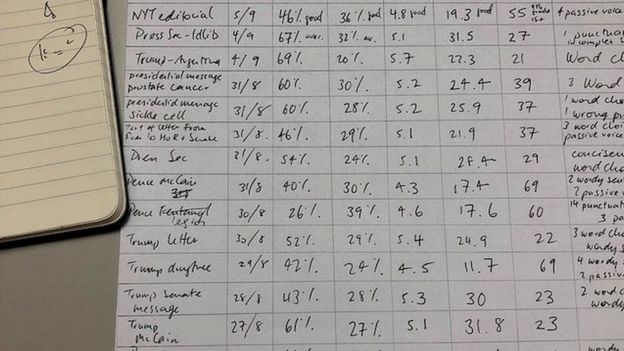 NYT editorial 5/9 46% good 36% good 4.8 good 19.3 good 55 4 passive voice
Press Sec-Idlib 4/9 67% aver. 32% av. 5.1 31.5 27 1 punctuat
incomplete
Trump-Argentina 4/9 69% 20% 5.7 22.3 21 Word cho
presidential message
prostate cancer 31/8 60% 30% 5.2 24.4 39 3 Word
presidential message
sickle cell 31/8 60% 28% 5.2 25.9 37 1 word choi
1 wrong pr
Text of Letter From
Pres to HoR + Senate 31/8 46% 29% 5.1 21.9 37 3 word choi
passive voice
Pren Sec 31/8 54% 24% 5.1 28.4 29 concisene
word cho
Pence McCain 31/8 40% 30% 4.3 17.4 69 2 wordy sen
2 passive v
Pence Kentanyl
legion 30/8 26% 39% 4.6 17.6 60 14 punctuat
3 pa
Trump letter 30/8 52% 29% 5.4 24.9 22 3 word cho
wordy s
Trump drugfree 29/8 42% 24% 4.5 11.7 69 4 wordy s
2 passive
Trump Senate
message 28/8 43% 28% 5.3 30 23 2 word c
wordy
Trump
McCain 27/8 61% 27% 5.1 31.8 23
wordy